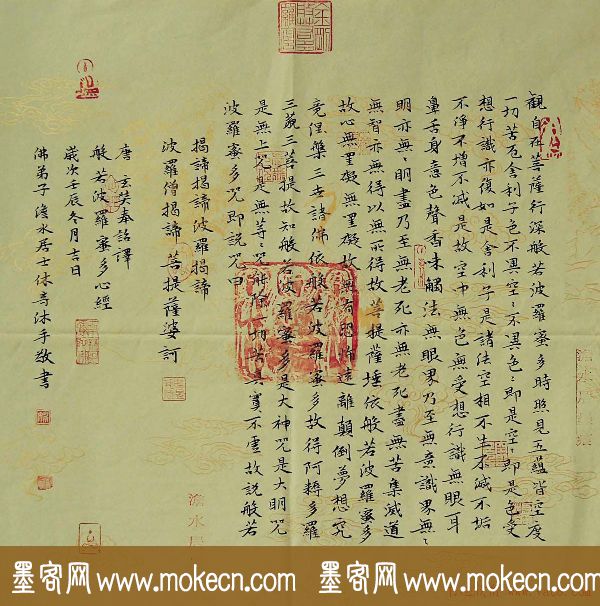 觀自在菩薩行深般若波羅蜜多時照見五蘊皆空度
一切苦厄舍利子色不異空〻不異色〻即是空〻即是色受
想行識亦復如是舍利子是諸法空相不生不滅不垢
不淨不增不減是故空中無色無受想行識無眼耳
鼻舌身意色聲香味觸法無眼界乃至無意識界無〻
明亦無〻明盡乃至無老死亦無老死盡無苦集滅道
無智亦無得以無所得故菩提薩埵依般若波羅蜜多
故心無罣礙無罣礙故無有恐怖遠離顛倒夢想究
竟涅槃三世諸佛依般若波羅蜜多故得阿耨多羅
三藐三菩提故知般若波羅蜜多是大神咒是大明咒
是無上咒是無等〻咒能除一切苦真實不虛故說般若
波羅蜜多咒即說咒曰
揭諦揭諦波羅揭諦
波羅僧揭諦 菩提薩婆訶
唐 玄奘奉詔譯
般若波羅蜜多心經
歲次壬辰冬月吉日
佛弟子澹水居士休尋沐手敬書
澹水居
墨客网 www.mokecn.com 墨客网 www.mokecn.com